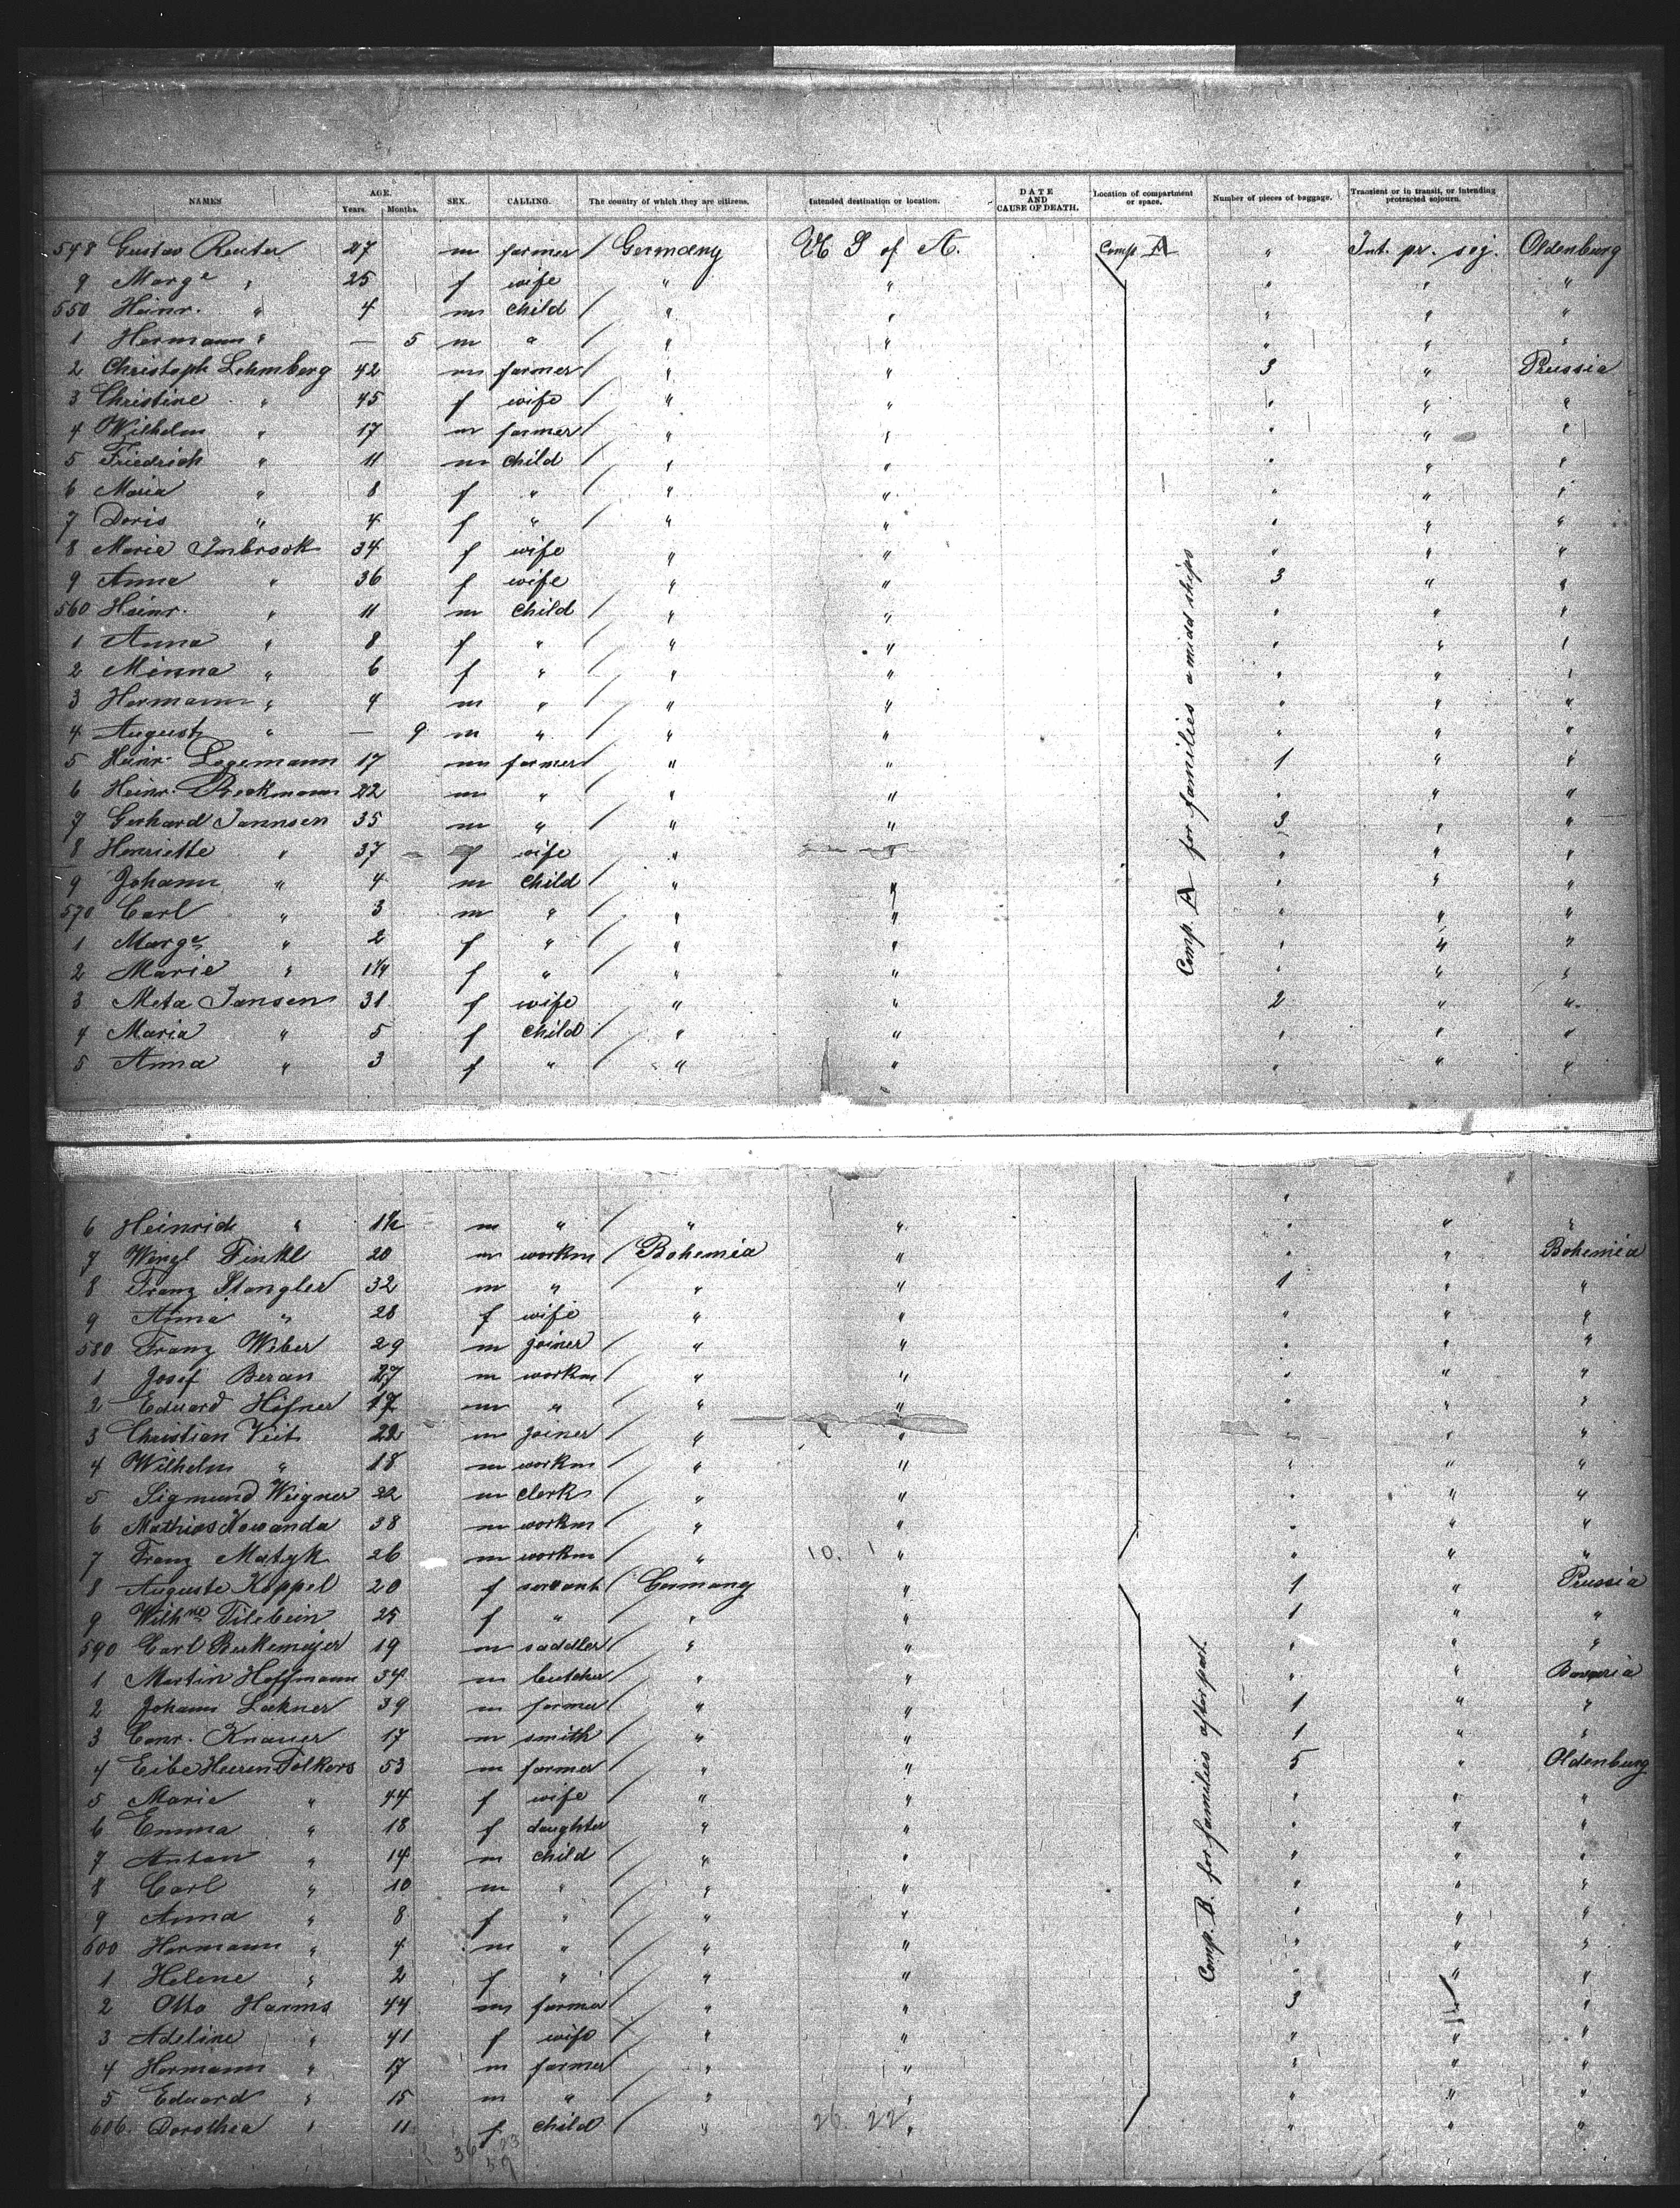 NAMES AGE. Years. Months. SEX. CALLING. The country of which they are citizens. Intended destination or location. DATE AND CAUSE OF DEATH. Location of compartment or space. Number of pieces of baggage. Transient or in transit, or intending protracted sojourn.
548 Gustav Reuter 27 m farmer / Germany U S of A. Comp. A " Int. pr. soj. Oldenburg
9 Marge " 25 f wife " " " " "
550 Heinr. " 4 m child / " " " " "
1 Hermann " — 5 m " / " " " " "
2 Christoph Lehmberg 42 m farmer / " " 3 " Prussia
3 Christine " 45 f wife " " " " "
4 Wilhelm " 17 m farmer / " " " " "
5 Friedrich " 11 m child / " " " " "
6 Maria " 8 f " / " " " " "
7 Doris " 4 f " / " " " " "
8 Marie Imbrook 34 f wife " " " " "
9 Anna " 36 f wife " " 3 " "
560 Heinr. " 11 m child / " " " " "
1 Anna " 8 f " / " " " " "
2 Minna " 6 f " / " " " " "
3 Hermann " 4 m " / " " " " "
4 August " — 9 m " / " " " " "
5 Heinr. Logemann 17 m farmer / " " 1 " "
6 Heinr. Beekmann 22 m " / " " " " "
7 Gerhard Jannsen 35 m " / " " 3 " "
8 Henriette " 37 f wife " " " " "
9 Johann " 4 m child / " " " " "
570 Carl " 3 m " / " " " " "
1 Marge " 2 f " / " " " " "
2 Marie " 1 1/4 f " / " " " " "
3 Meta Jansen 31 f wife " " 2 " "
4 Maria " 5 f child / " " " " "
5 Anna " 3 f " / " " " " "
Comp. A for families amidd ships
6 Heinrich " 1 1/2 m " / " " " " "
7 Wenzl Finkl 20 m workm / Bohemia " " " Bohemia
8 Franz Stangler 32 m " / " " 1 " "
9 Anna " 28 f wife " " " " "
580 Franz Weber 29 m joiner / " " " " "
1 Josef Beran 27 m workm / " " " " "
2 Eduard Höfner 17 m " / " " " " "
3 Christian Veit 22 m joiner / " " " " "
4 Wilhelm " 18 m workm / " " " " "
5 Sigmund Weigner 22 m clerk / " " " " "
6 Mathias Kowanda 38 m workm / " " " " "
7 Franz Matyk 26 m workm / " 10. 1 " " " "
8 Auguste Koppel 20 f servant / Germany " 1 " Prussia
9 Wilhne Tilebein 25 f " / " " 1 " "
590 Carl Berkemeyer 19 m saddler / " " " " "
1 Martin Hoffmann 34 m butcher / " " " " Bavaria
2 Johann Lackner 39 m farmer / " " 1 " "
3 Conr. Knauer 17 m smith / " " 1 " "
4 Eibe Heeren Folkers 53 m farmer / " " 5 " Oldenburg
5 Marie " 44 f wife / " " " " "
6 Emma " 18 f daughter " " " " "
7 Anton " 14 m child / " " " " "
8 Carl " 10 m " / " " " " "
9 Anna " 8 f " / " " " " "
600 Hermann " 4 m " / " " " " "
1 Helene " 2 f " / " " " " "
2 Otto Harms 44 m farmer / " " 3 " "
3 Adeline " 41 f wife / " " " " "
4 Hermann " 17 m farmer / " " " " "
5 Eduard " 15 m " / " " " " "
606. Dorothea " 11 f child / " 26. 22 " " " "
Comp. B. for families after part.
36 23
59